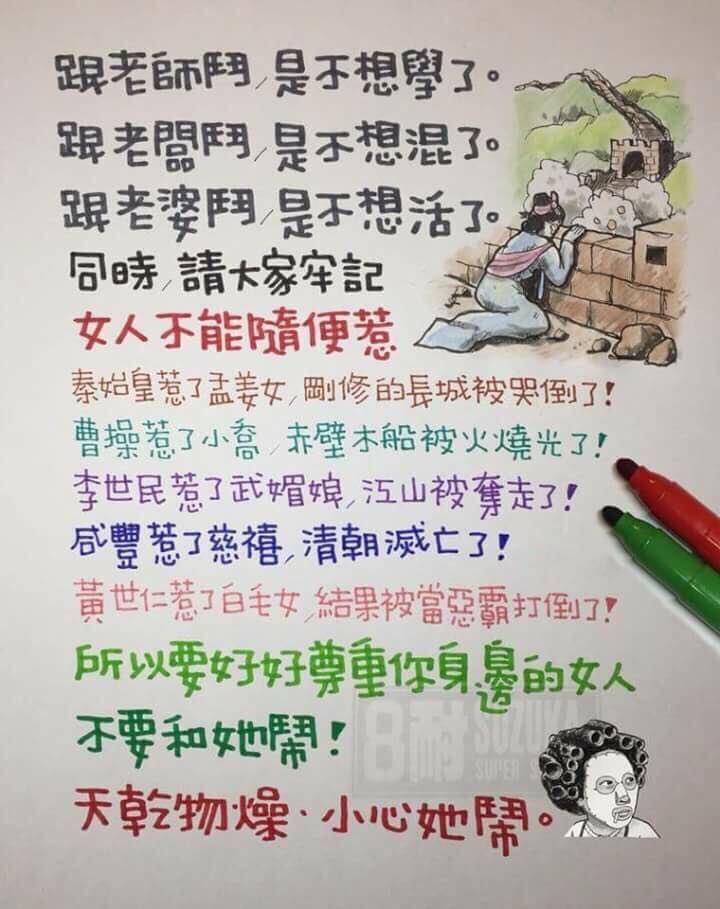 跟老師鬥,是不想學了。
跟老闆鬥,是不想混了。
跟老婆鬥,是不想活了。
同時,請大家牢記
女人不能隨便惹
秦始皇惹了孟姜女,剛修的長城被哭倒了!
曹操惹了小喬,赤壁木船被火燒光了!
李世民惹了武媚娘,江山被奪走了!
咸豐惹了慈禧,清朝滅亡了!
黃世仁惹了白毛女,結果被當惡霸打倒了!
所以要好好尊重你身邊的女人
不要和她鬧!
天乾物燥·小心她鬧。
8耐 SUZUKA
SUPER S